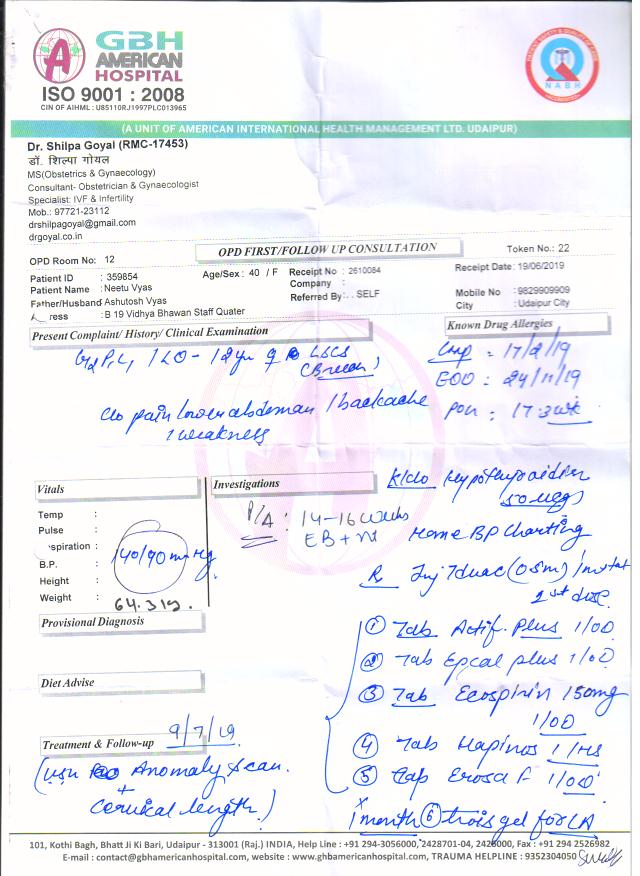 GBH
AMERICAN
HOSPITAL
ISO 9001 : 2008
CIN OF AIHML : U85110RJ1997PLC013965
NABH
(A UNIT OF AMERICAN INTERNATIONAL HEALTH MANAGEMENT LTD. UDAIPUR)
Dr. Shilpa Goyal (RMC-17453)
डॉ. शिल्पा गोयल
MS(Obstetrics & Gynaecology)
Consultant- Obstetrician & Gynaecologist
Specialist: IVF & Infertility
Mob.: 97721-23112
drshilpagoyal@gmail.com
drgoyal.co.in
OPD FIRST/FOLLOW UP CONSULTATION
Token No.: 22
OPD Room No: 12
Patient ID : 359854
Age/Sex : 40 / F
Receipt No : 2610084
Receipt Date: 19/06/2019
Patient Name : Neetu Vyas
Company :
Mobile No :9829909909
Father/Husband Ashutosh Vyas
Referred By: . SELF
City : Udaipur City
ress : B 19 Vidhya Bhawan Staff Quater
Present Complaint/ History/ Clinical Examination
Known Drug Allergies
G2P1L1 / LO - 12yr LSCS
(Breech)
LMP = 17/2/19
EDD : 24/11/19
POG : 17.3wk
c/o pain lower abdoman / backache
/ weakness
K/c/o Hypothyroidism
50 mcg
Vitals
Investigations
P/A : 14-16 weeks
Home BP Charting
Temp :
Pulse :
spiration :
B.P. : 140/90 mmHg.
Height :
Weight : 64.3
(0.5ml)
1st dose
Provisional Diagnosis
① Tab Actif. Plus 1/OD
② Tab Epcal plus 1/OD
③ Tab Ecospirin 150mg
1/OD
Diet Advise
Treatment & Follow-up 9/7/19
④ Tab 1/HS
⑤ Cap 1/OD
(USG Anomaly scan.
+
Cervical length)
x
1 month ⑥ gel for LA
101, Kothi Bagh, Bhatt Ji Ki Bari, Udaipur - 313001 (Raj.) INDIA, Help Line : +91 294-3056000, 2428701-04, 2426000, Fax : +91 294 2526982
E-mail : contact@gbhamericanhospital.com, website : www.gbhamericanhospital.com, TRAUMA HELPLINE : 9352304050